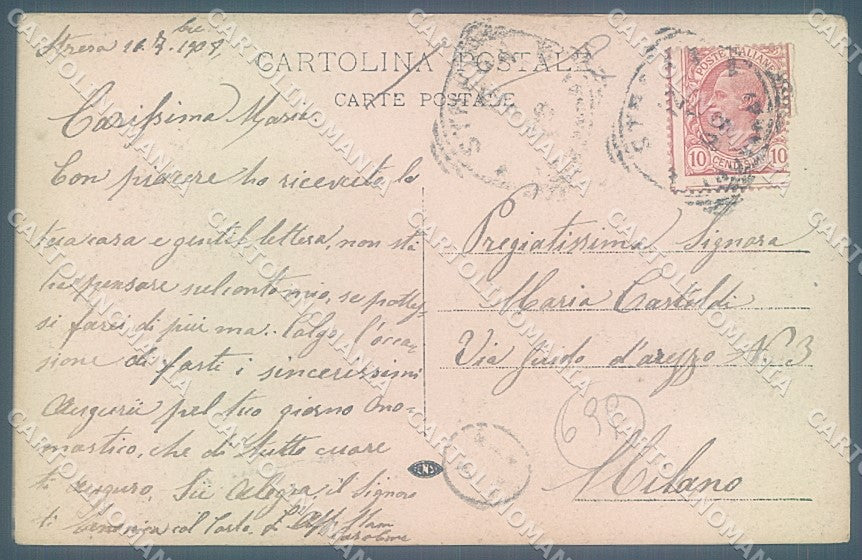 Stresa 11. 7bre 1909
CARTOLINA POSTALE
CARTE POSTALE
Carissima Maria
Con piacere ho ricevuto la
tua cara e gentil lettera, non stà
ha pensare sul conto mio, se potes-
si farei di più ma.. Colgo l'occa-
sione di farti i sincerissimi
Augurii pel tuo giorno Ono-
mastico, che di tutto cuore
ti auguro. Sii Alegra, il Signore
ti col
POSTE ITALIANE
10 CENTESIMI 10
Pregiatissima Signora
Maria Casteldi
Via Guido d'arezzo No. 3
Milano
699
CARTOLINOMANIA